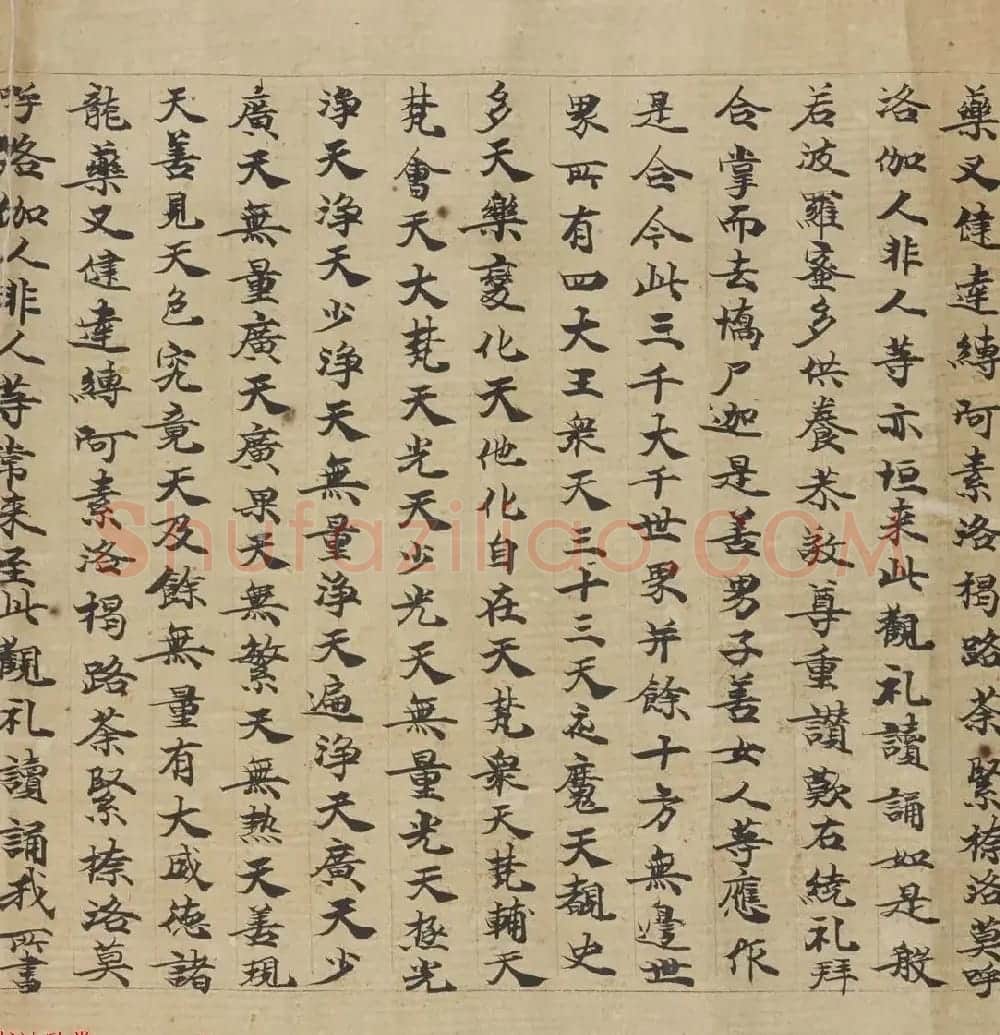 藥叉健達縛阿素洛揭路荼緊捺洛莫呼
洛伽人非人等亦恒來此觀礼讀誦如是般
若波羅蜜多供養恭敬尊重讃歎右繞礼拜
合掌而去憍尸迦是善男子善女人等應作
是念今此三千大千世界并餘十方無邊世
界所有四大王衆天三十三天夜魔天覩史
多天樂變化天他化自在天梵衆天梵輔天
梵會天大梵天光天少光天無量光天極光
淨天淨天少淨天無量淨天遍淨天廣天少
廣天無量廣天廣果天無繁天無熱天善現
天善見天色究竟天及餘無量有大威德諸
龍藥叉健達縛阿素洛揭路荼緊捺洛莫
呼洛伽人非人等常来至此觀礼讀誦我所書
Shufaziliao.COM